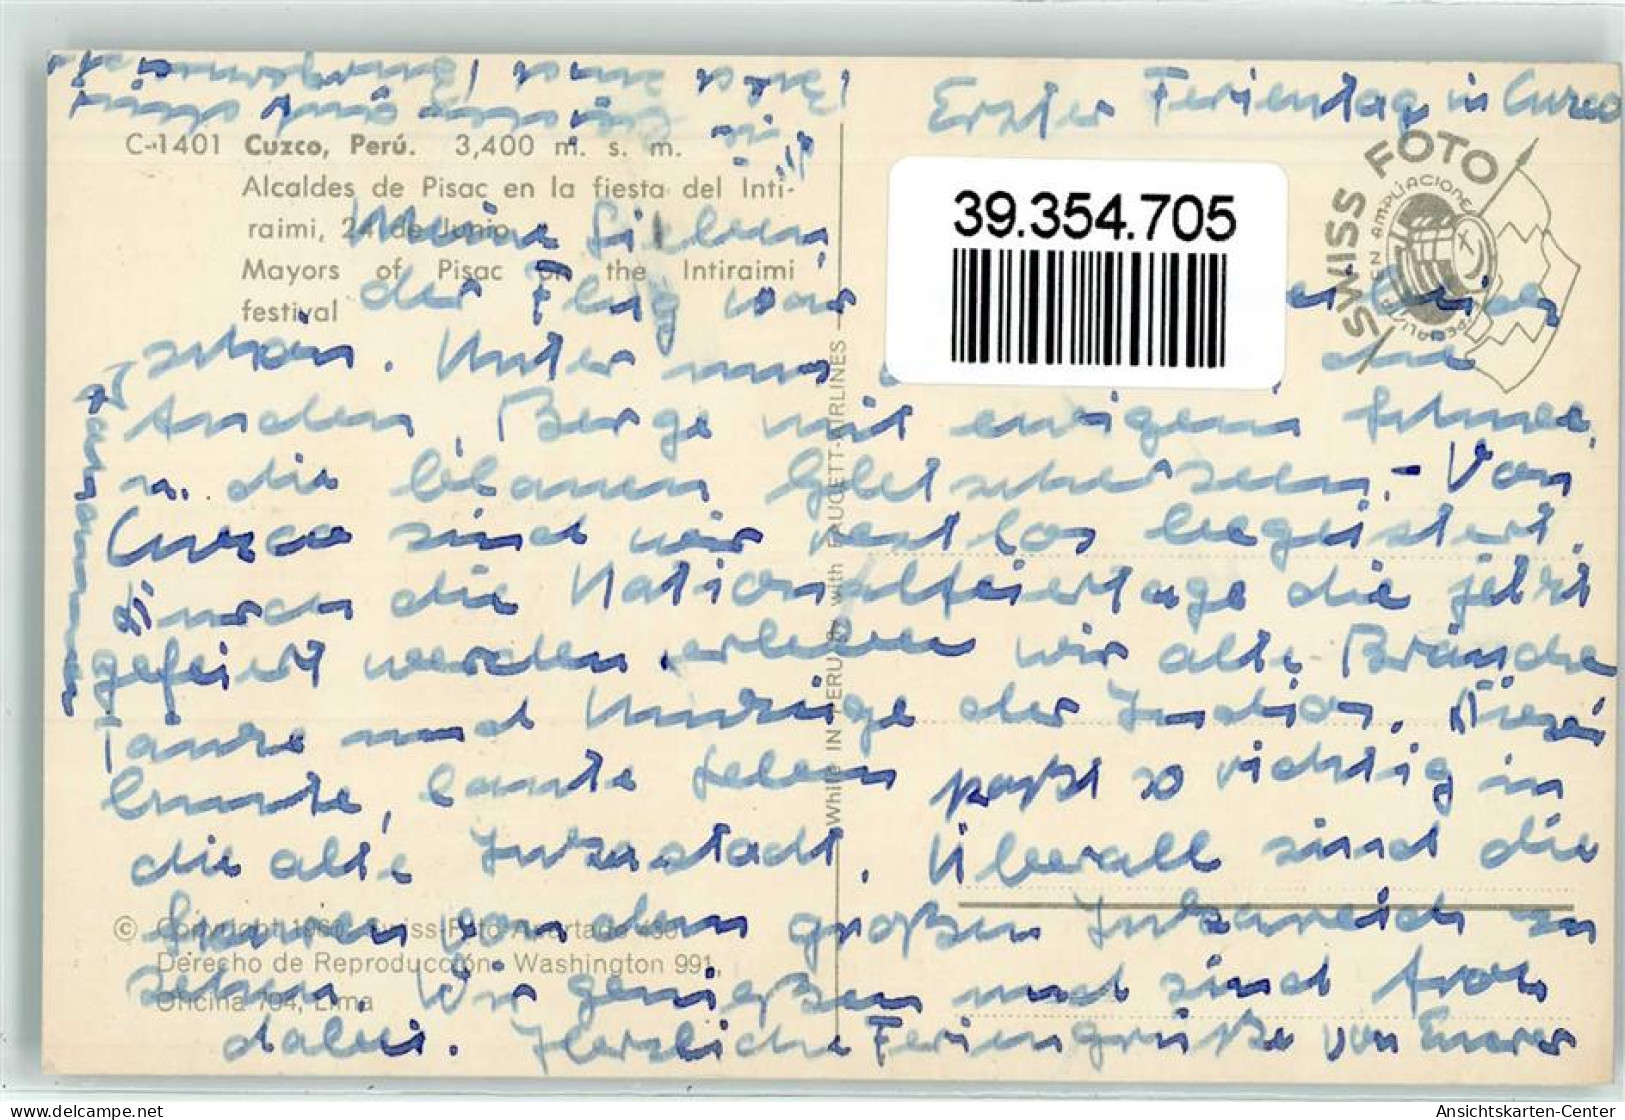 Erster Ferientag in Cuzco
C-1401 Cuzco, Perú. 3,400 m. s. m.
Alcaldes de Pisac en la fiesta del Inti-
raimi, 24 de Junio
Mayors of Pisac on the Intiraimi
festival
SWISS FOTO
39.354.705
Meine Lieben,
der Flug war
schön. Unter uns die
Anden, Berge mit ewigem Schnee,
u. die blauen Gletscherseen. - Von
Cuzco sind wir restlos begeistert.
Durch die Nationalfeiertage die jetzt
gefeiert werden, erleben wir alte Bräuche
Tänze und Umzüge der Indios. Dieses
bunte, laute Leben paßt so richtig in
die alte Inkastadt. Überall sind die
von dem großen Inkareich zu
sehen. Wir genießen und sind froh
dabei. Herzliche Feriengrüße von Eurer
© Copyright Swiss-Foto Apartado
Derecho de Reproducción Washington 991,
Oficina 704, Lima
White IN PERU with FAUCETT-AIRLINES
Ansichtskarten-Center